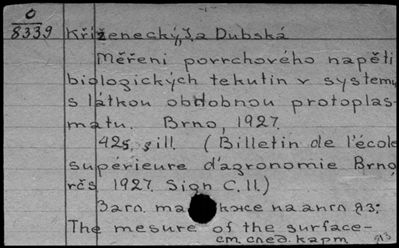 O
8339
Kříženecký, J. a Dubská
Měření povrchového napětí
biologických tekutin v systemu
s látkou obdobnou protoplas-
matu. Brno, 1927.
42s, ill. (Billetin de l'école
supérieure d'agronomie Brno,
rčs 1927. Sign C. 11.)
Загл. также на англ яз:
The mesure of the surface-
см. след. карт.